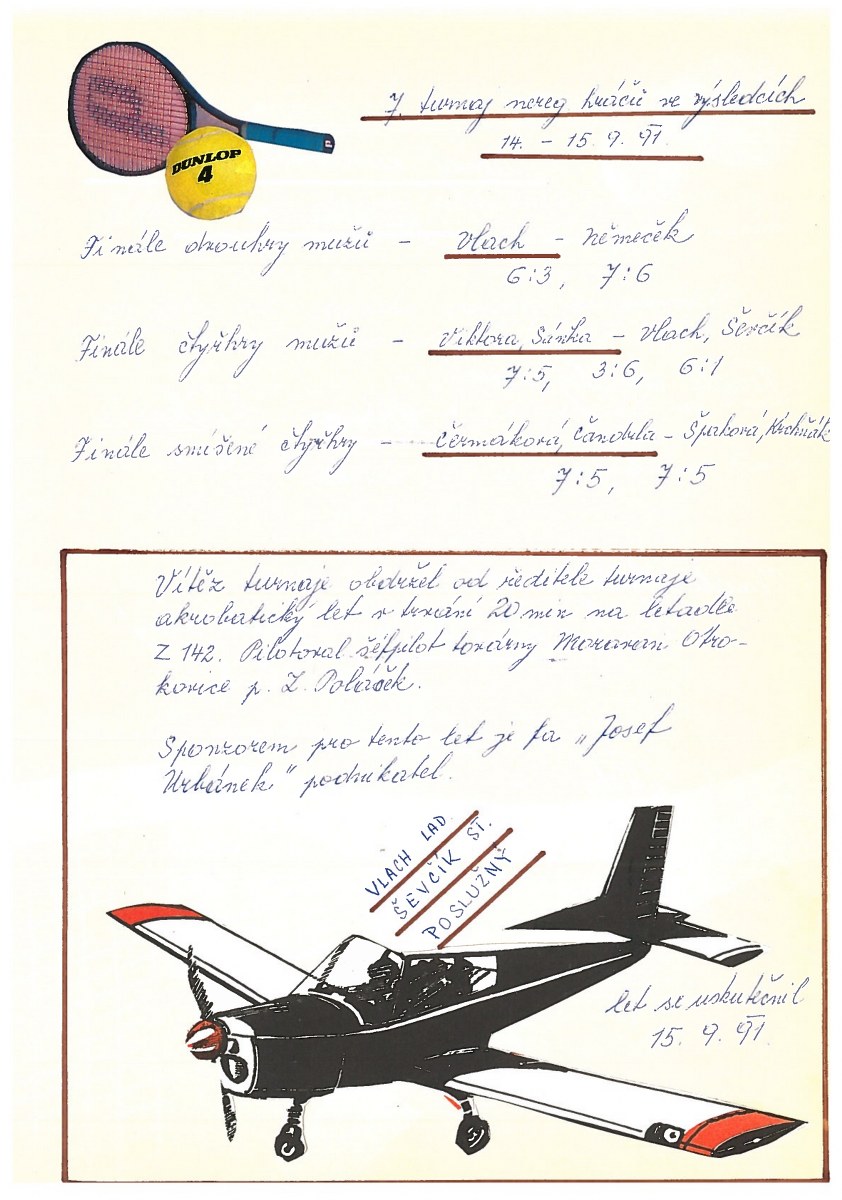 DUNLOP
4
7. turnaj nereg hráčů ve výsledcích
14. – 15. 9. 91.
Finále dvouhry mužů – Vlach – Němeček
6:3, 7:6
Finále čtyřhry mužů – Viktora, Sánka – Vlach, Ševčík
7:5, 3:6, 6:1
Finále smíšené čtyřhry – Čermáková, Čandrla – Špaková, Krchňák
7:5, 7:5
Vítěz turnaje obdržel od ředitele turnaje
akrobatický let v trvání 20 min na letadle
Z 142. Pilotoval šéfpilot továrny Moravan Otro-
kovice p. Z. Poláček.
Sponzorem pro tento let je fa „Josef
Urbánek" podnikatel.
VLACH LAD
ŠEVČÍK ST.
POSLUŽNÝ
let se uskutečnil
15. 9. 91.